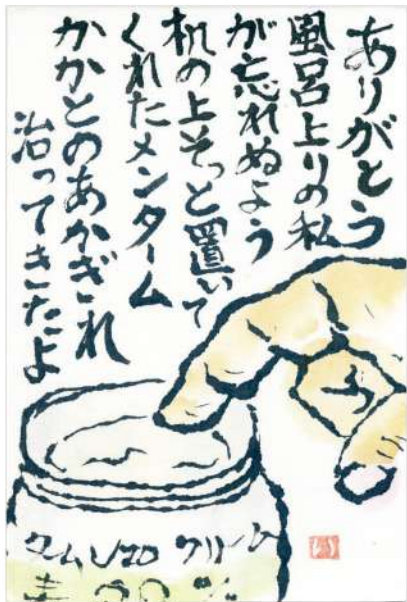 ありがとう
風呂上りの私
が忘れぬよう
机の上そっと置いて
くれたメンターム
かかとのあかぎれ
治ってきたよ
クリーム
20%